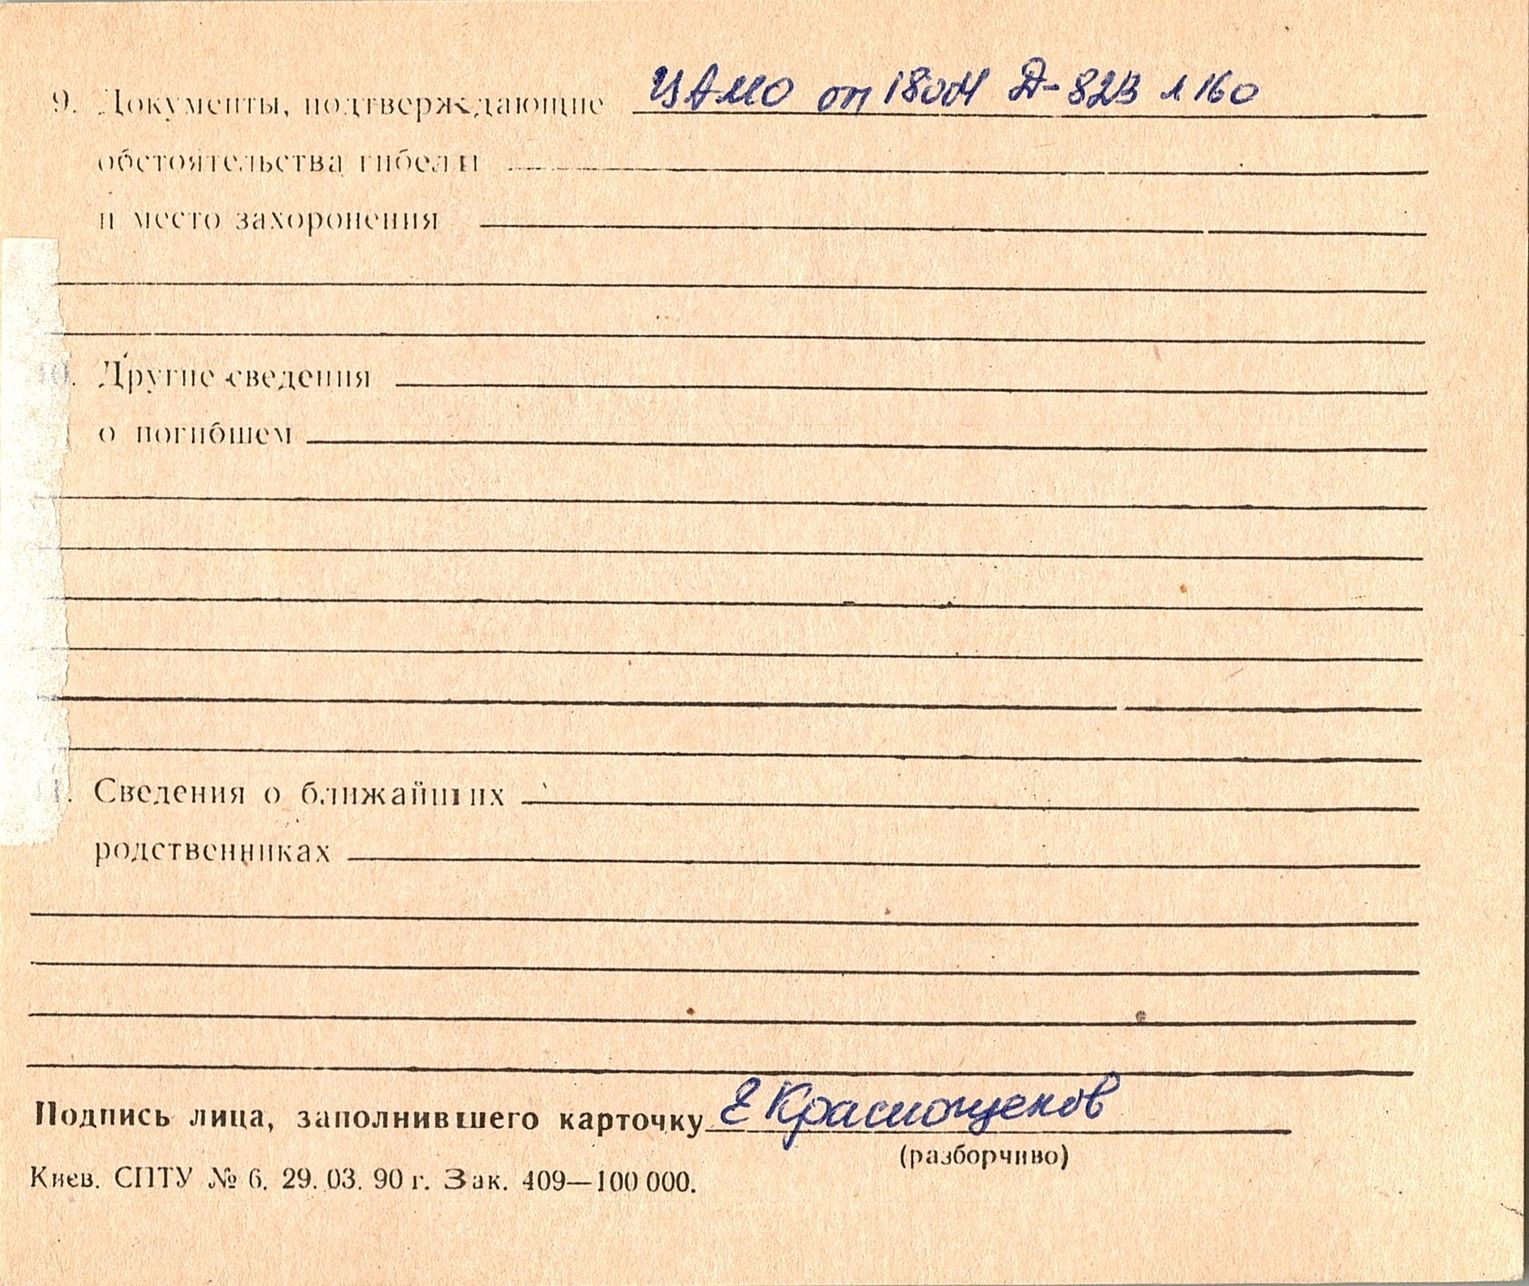 9. Документы, подтверждающие ЦАМО оп 18004 Д-823 л 160
обстоятельства гибели
и место захоронения
10. Другие сведения
о погибшем
Сведения о ближайших
родственниках
Подпись лица, заполнившего карточку Е Краснощеков
(разборчиво)
Киев. СПТУ № 6. 29. 03. 90 г. Зак. 409—100 000.